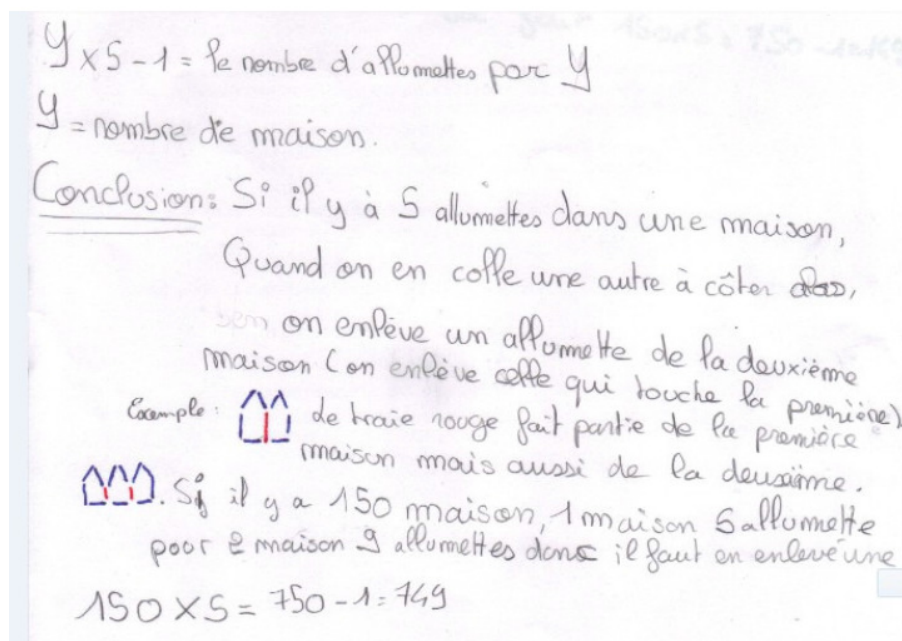 y x 5 - 1 = le nombre d'allumettes par y
y = nombre de maison.
Conclusion: Si il y à 5 allumettes dans une maison,
Quand on en colle une autre à côter
on enlève un allumette de la deuxième
maison (on enlève celle qui touche la première)
Exemple: de traie rouge fait partie de la première
maison mais aussi de la deuxième.
. Si il y a 150 maison, 1 maison 5 allumette
pour 2 maison 9 allumettes donc il faut en enlevé une
150 x 5 = 750 - 1 = 749